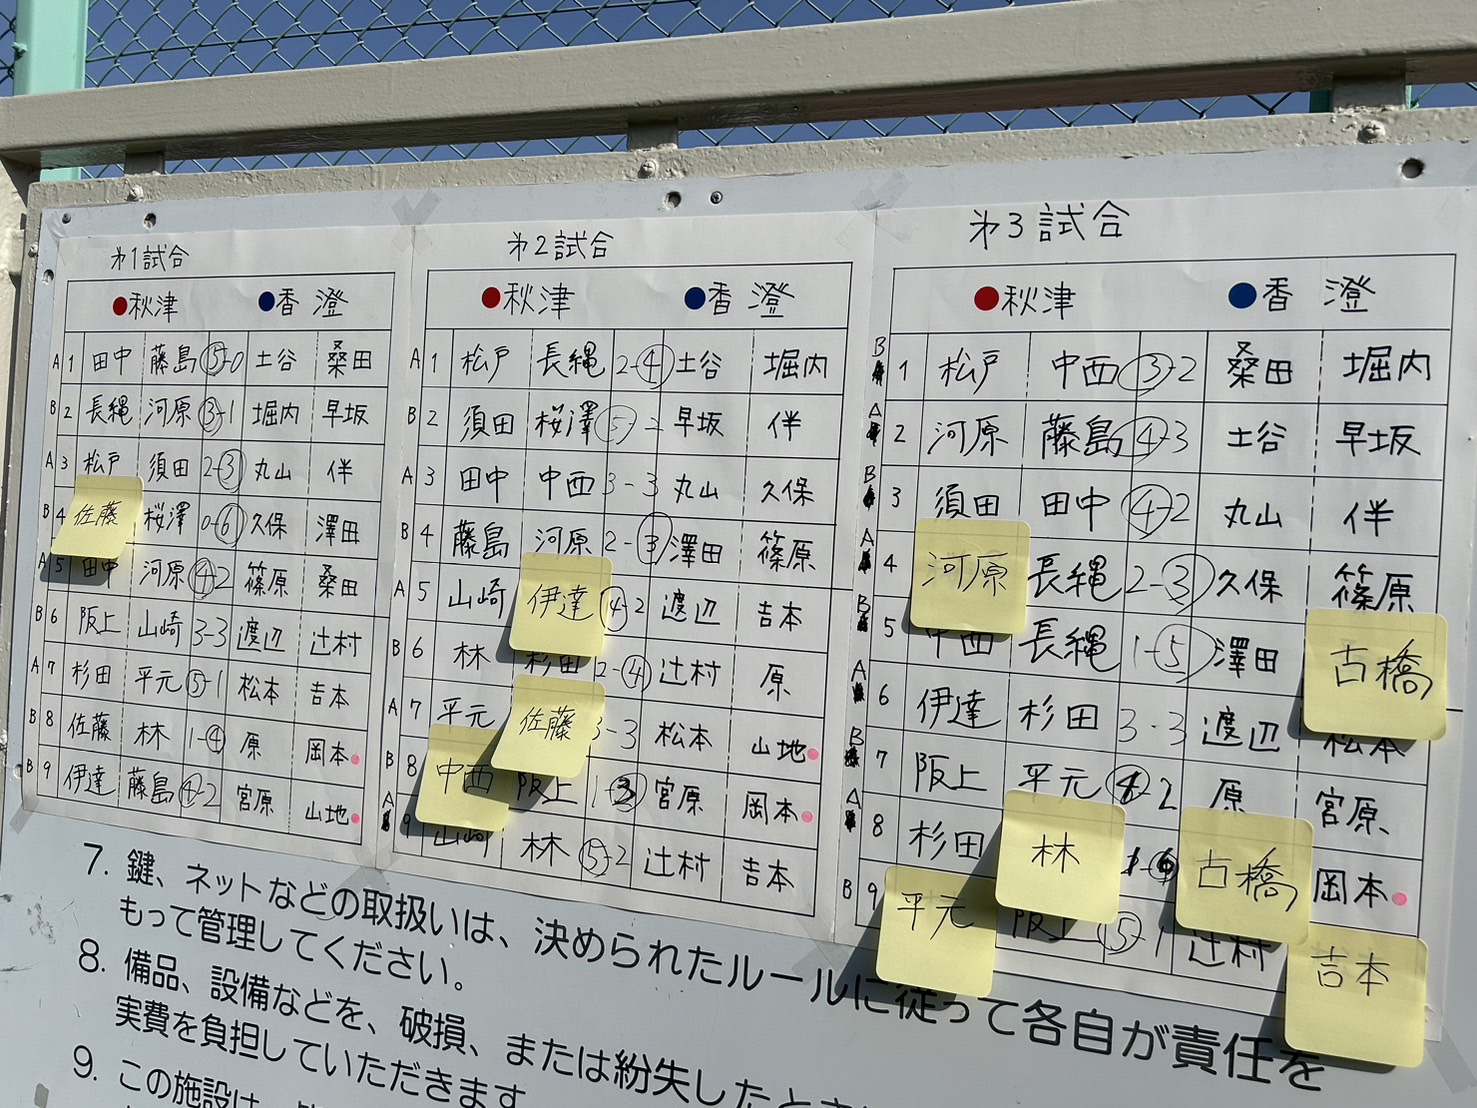 オ1試合
秋津 香澄
A 1 田中 藤島 5-0 土谷 桑田
B 2 長縄 河原 3-1 堀内 早坂
A 3 松戸 須田 2-3 丸山 伴
B 4 佐藤 桜澤 0-6 久保 澤田
A 5 田中 河原 4-2 篠原 桑田
B 6 阪上 山崎 3-3 渡辺 辻村
A 7 杉田 平元 5-1 松本 吉本
B 8 佐藤 林 1-4 原 岡本
B 9 伊達 藤島 4-2 宮原 山地
オ2試合
秋津 香澄
A 1 松戸 長縄 2-4 土谷 堀内
B 2 須田 桜澤 5-2 早坂 伴
A 3 田中 中西 3-3 丸山 久保
B 4 藤島 河原 2-3 澤田 篠原
A 5 山崎 伊達 4-2 渡辺 吉本
B 6 林 杉田 2-4 辻村 原
A 7 平元 佐藤 3-3 松本 山地
B 8 中西 阪上 1-3 宮原 岡本
A 9 山崎 林 5-2 辻村 吉本
オ3試合
秋津 香澄
B 1 松戸 中西 3-2 桑田 堀内
A 2 河原 藤島 4-3 土谷 早坂
B 3 須田 田中 4-2 丸山 伴
A 4 河原 長縄 2-3 久保 篠原
B 5 中西 長縄 1-5 澤田 古橋
A 6 伊達 杉田 3-3 渡辺 松本
B 7 阪上 平元 4-2 原 宮原
A 8 杉田 林 1-6 古橋 岡本
B 9 平元 阪上 5-1 辻村 吉本
7. 鍵、ネットなどの取扱いは、決められたルールに従って各自が責任を
もって管理してください。
8. 備品、設備などを、破損、または紛失したとき
実費を負担していただきます
9. この施設は